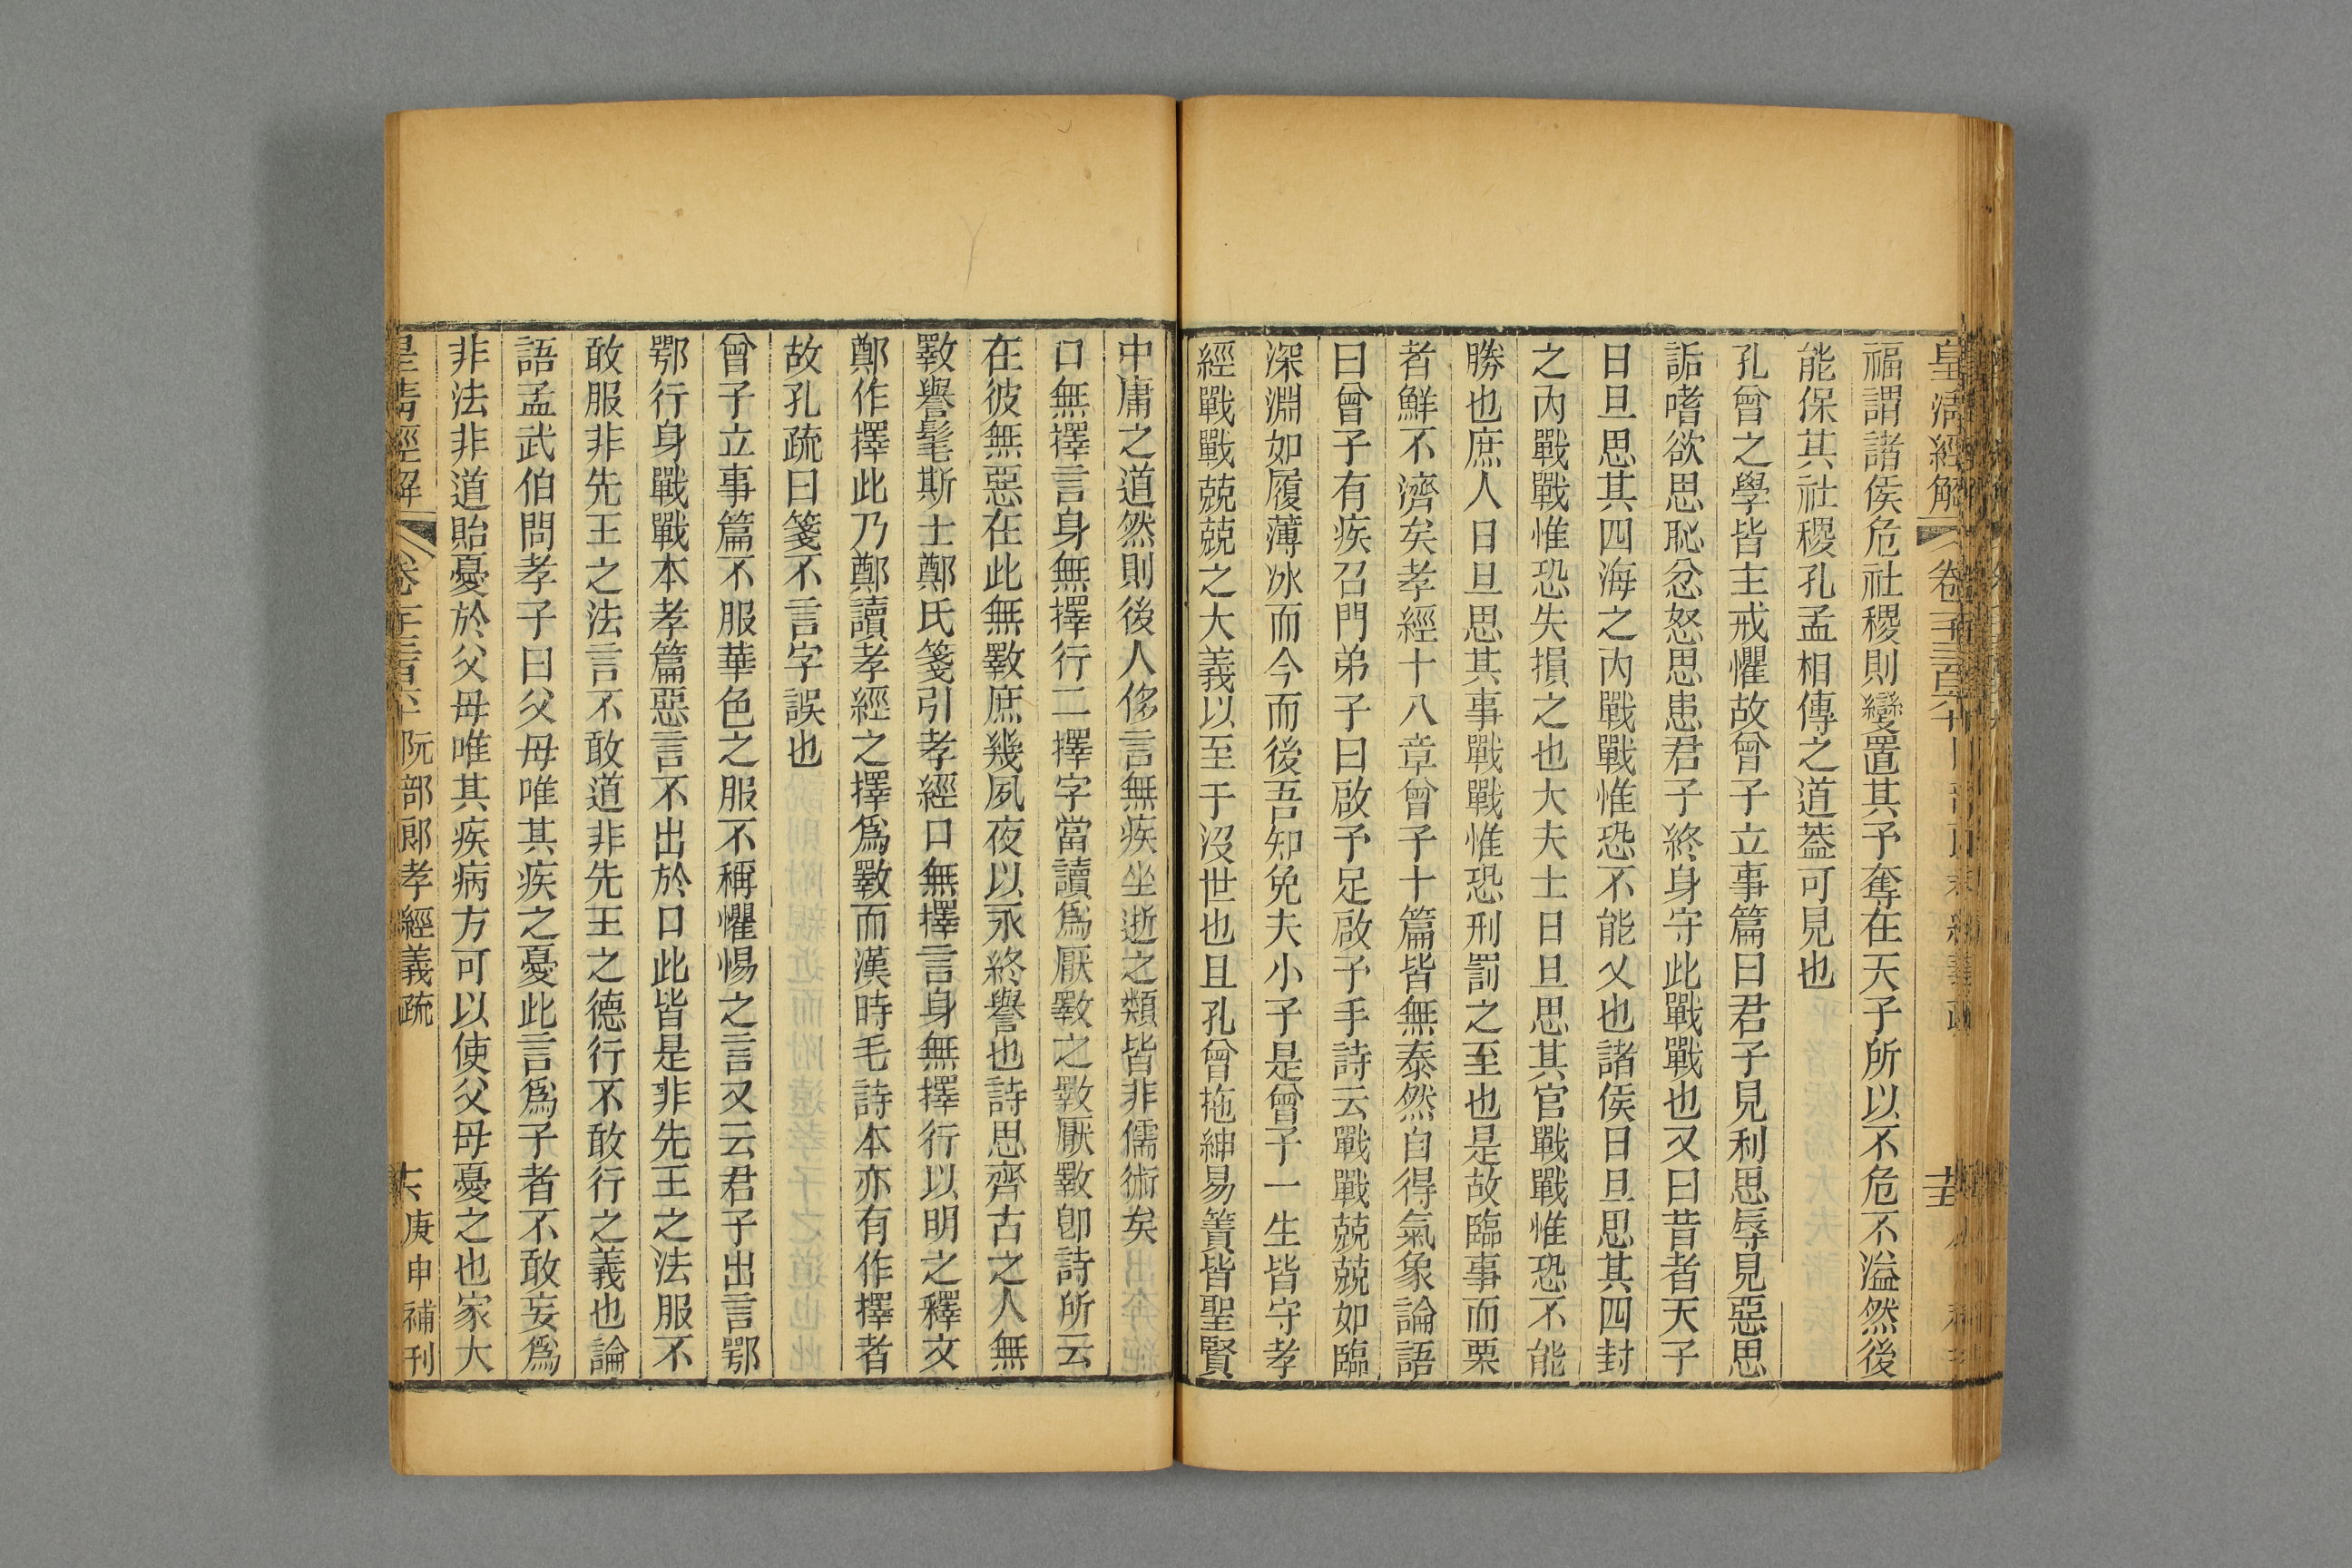 皇清經解
福謂諸侯危社稷則變置其予奪在天子所以不危不溢然後
能保其社稷孔孟相傳之道葢可見也
孔曾之學皆主戒懼故曾子立事篇曰君子見利思辱見惡思
詬嗜欲思恥忿怒思患君子終身守此戰戰也又曰昔者天子
日旦思其四海之內戰戰惟恐不能乂也諸侯日旦思其四封
之內戰戰惟恐失損之也大夫士日旦思其官戰戰惟恐不能
勝也庶人日旦思其事戰戰惟恐刑罰之至也是故臨事而栗
者鮮不濟矣孝經十八章曾子十篇皆無泰然自得氣象論語
曰曾子有疾召門弟子曰啟予足啟予手詩云戰戰兢兢如臨
深淵如履薄冰而今而後吾知免夫小子是曾子一生皆守孝
經戰戰兢兢之大義以至于沒世也且孔曾拖紳易簀皆聖賢
中庸之道然則後人侈言無疾坐逝之類皆非儒術矣
口無擇言身無擇行二擇字當讀爲厭斁之斁厭斁卽詩所云
在彼無惡在此無斁庶幾夙夜以永終譽也詩思齊古之人無
斁譽髦斯士鄭氏箋引孝經口無擇言身無擇行以明之釋文
鄭作擇此乃鄭讀孝經之擇爲斁而漢時毛詩本亦有作擇者
故孔疏曰箋不言字誤也
曾子立事篇不服華色之服不稱懼惕之言又云君子出言鄂
鄂行身戰戰本孝篇惡言不出於口此皆是非先王之法服不
敢服非先王之法言不敢道非先王之德行不敢行之義也論
語孟武伯問孝子曰父母唯其疾之憂此言爲子者不敢妄爲
非法非道貽憂於父母唯其疾病方可以使父母憂之也家大
皇清經解 阮部郎孝經義疏 庚申補刊